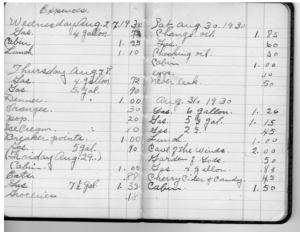 Expenses
Wednesday Aug. 27, 1930
Gas. 4 gallon. 72
Cabin 1.25
Lunch 1.10
Thursday Aug 28.
Gas 4 gallon 72
Gas 5 gal. 90
Dinner. 1.00
Oranges. 30
pop. 20
Ice Cream. 10
Breaker points. 1.00
Gas 5 gal. 90
(Friday Aug 29.)
Cabin. 1.00
Eats. 88
Gas 7½ gal. 1.38
Groceries .18
Sat. Aug. 30. 1930
Change oil. 1.85
Gas. 60
30
Cabin 1.00
Eggs. 10
50
Aug. 31. 1930
Gas 6 gallon. 1.26
Gas 5 gal. 1.15
Gas 2 g. 45
Lunch 1.00
Cave of the Winds. 2.00
Garden of Gods. 50
Gas gallon. 88
Cherry Cider & Candy. 45
Cabin. 1.50